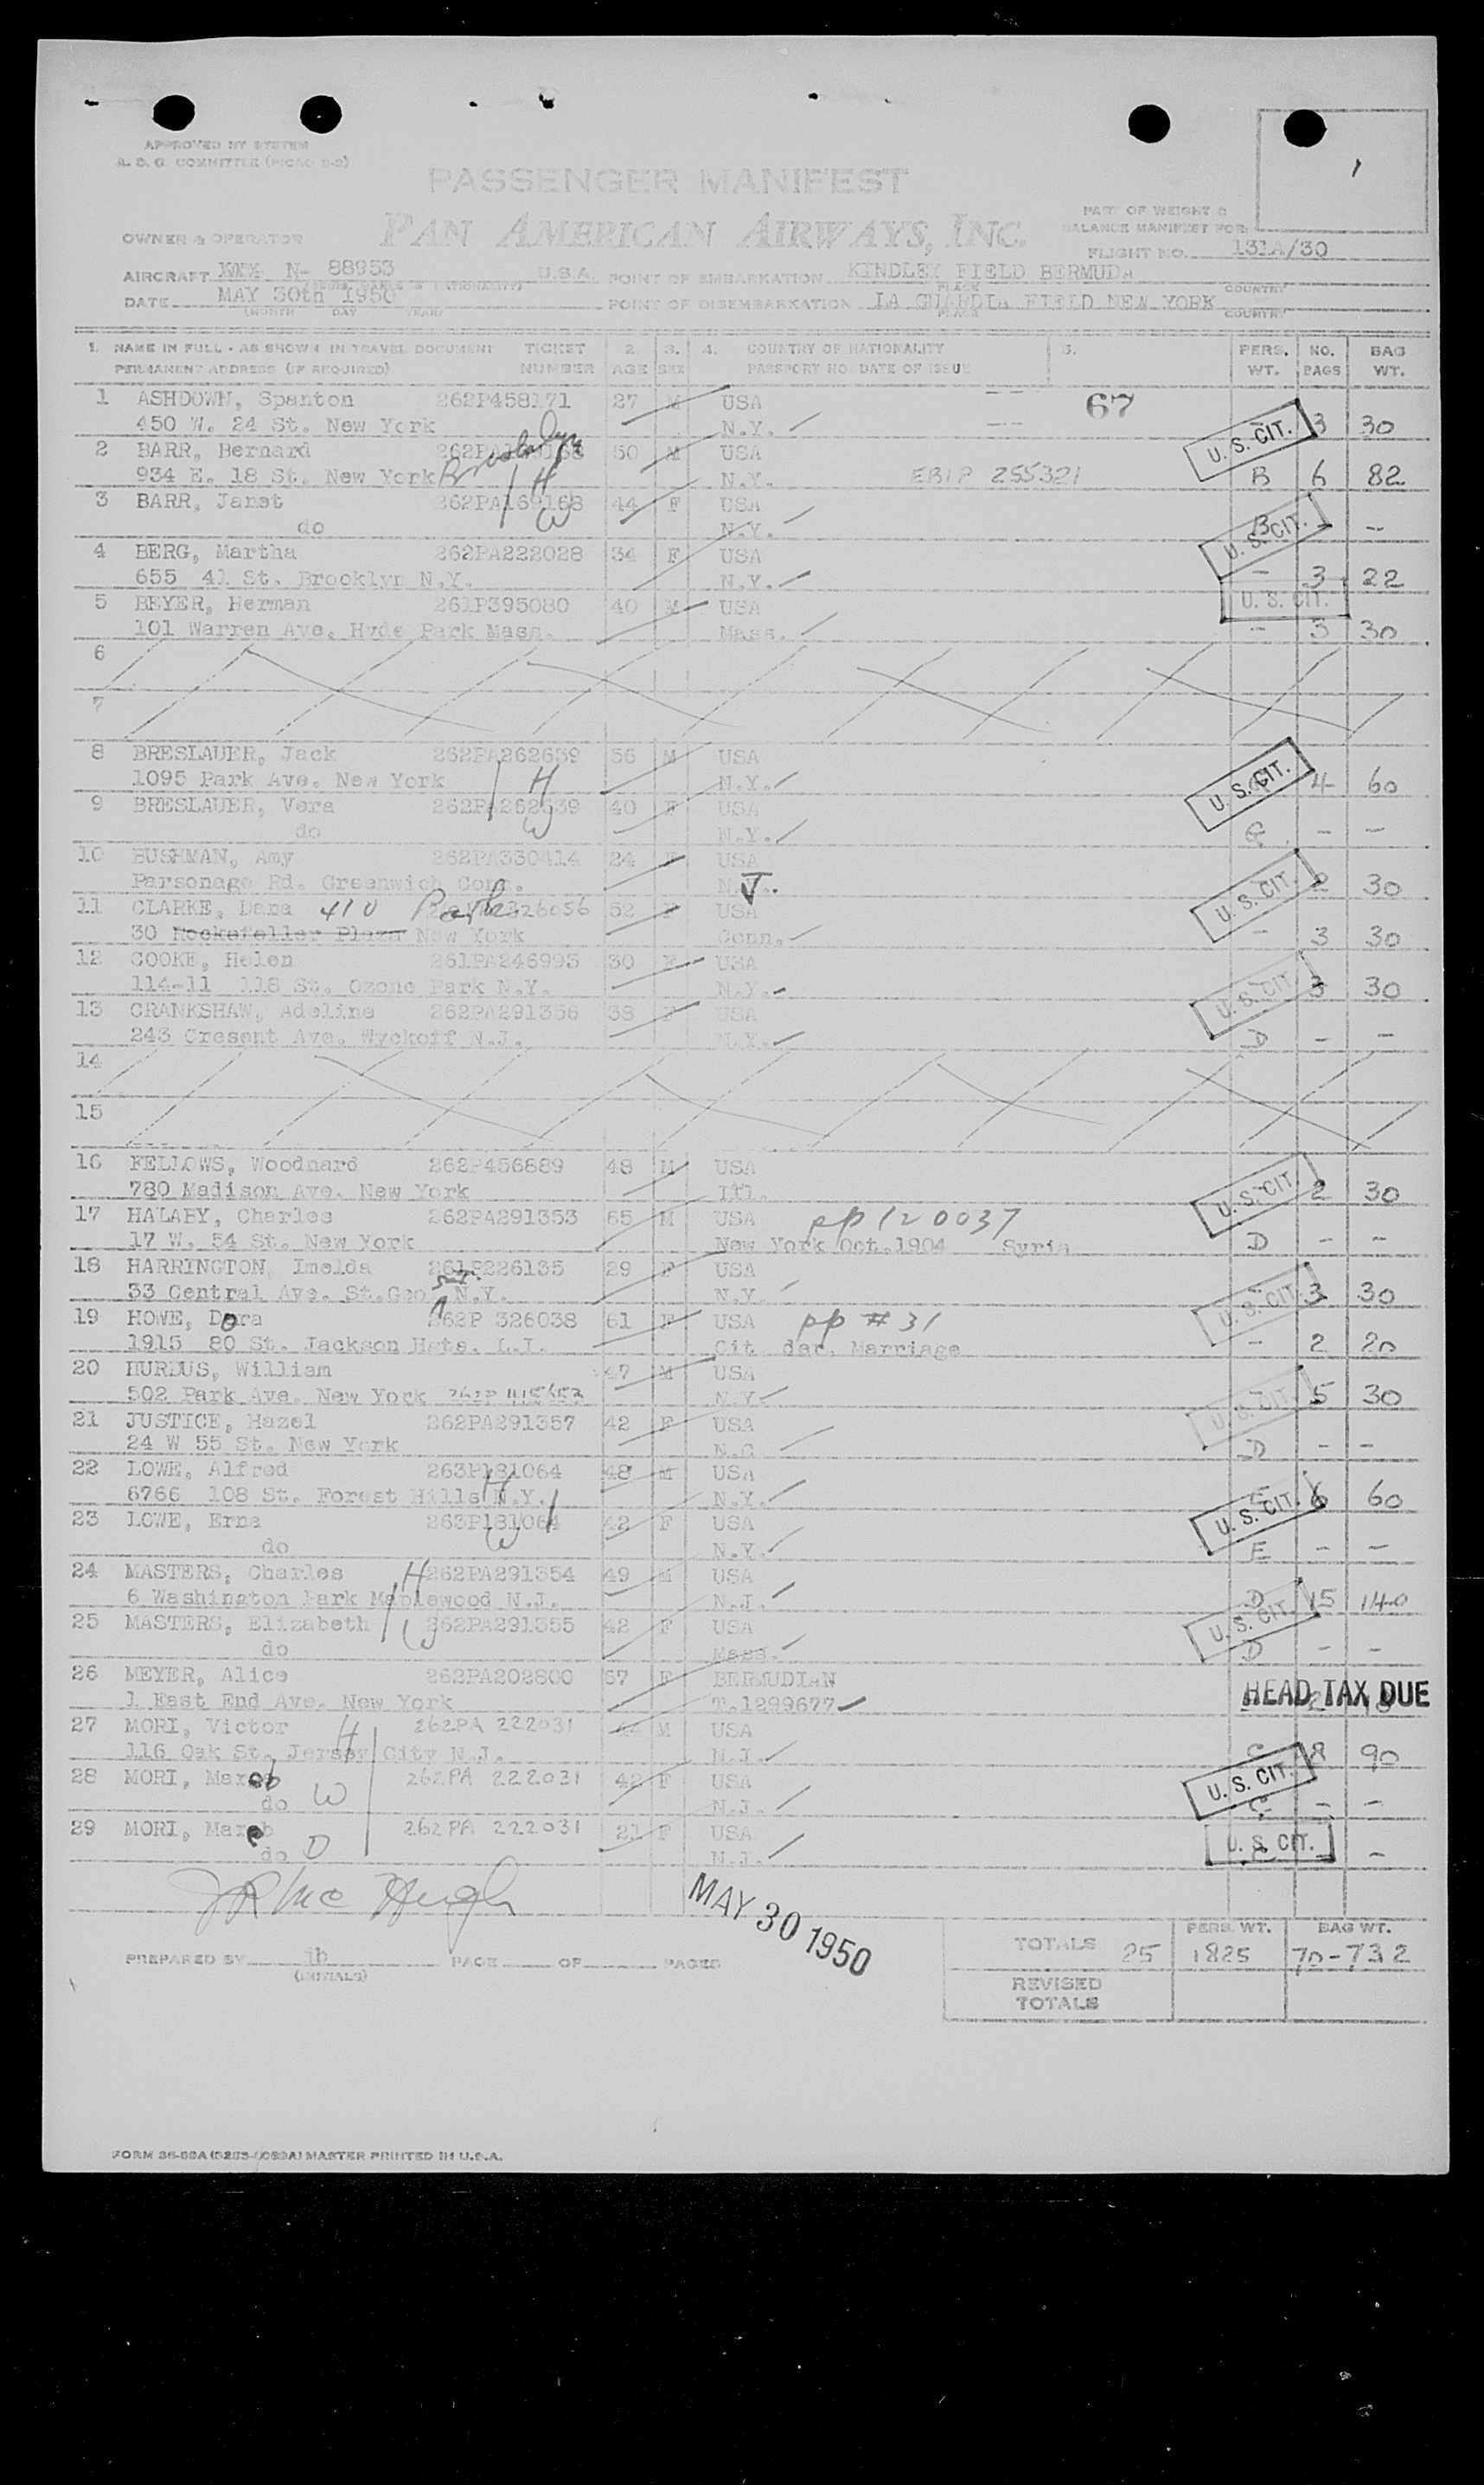 APPROVED BY SYSTEM
A. D. G. COMMITTEE (MCAC 5-2)
PASSENGER MANIFEST
PAN AMERICAN AIRWAYS, INC.
PART OF WEIGHT &
BALANCE MANIFEST FOR:
OWNER & OPERATOR
FLIGHT NO. 131A/30
AIRCRAFT N- 88953 U.S.A. POINT OF EMBARKATION KINDLEY FIELD BERMUDA
PLACE COUNTRY
DATE MAY 30th 1950 POINT OF DISEMBARKATION LA GUARDIA FIELD NEW YORK
(MONTH DAY YEAR) PLACE COUNTRY
1. NAME IN FULL - AS SHOWN IN TRAVEL DOCUMENT TICKET 2. 3. 4. COUNTRY OF NATIONALITY 5. PERS. NO. BAG
PERMANENT ADDRESS (IF REQUIRED) NUMBER AGE SEX PASSPORT NO. DATE OF ISSUE WT. BAGS WT.
1 ASHDOWN, Spanton 262P458171 27 M USA 67
450 W. 24 St. New York N.Y. U. S. CIT. 3 30
2 BARR, Bernard 50 M USA
934 E. 18 St. New York Brooklyn H N.Y. EBIP 255321 B 6 82
3 BARR, Janet 262PA169168 44 F USA
do W N.Y. B U. S. CIT. -
4 BERG, Martha 262PA222028 34 F USA
655 41 St. Brooklyn N.Y. N.Y. - 3 22
5 BEYER, Herman 261P395080 40 M USA U. S. CIT.
101 Warren Ave. Hyde Park Mass. Mass. - 3 30
6
7
8 BRESLAUER, Jack 262PA262639 56 M USA
1095 Park Ave. New York H N.Y. U. S. CIT. 4 60
9 BRESLAUER, Vera 262PA262639 40 F USA
do W N.Y. G - -
10 BUSHMAN, Amy 262PA330414 24 F USA
Parsonage Rd. Greenwich Conn. U. S. CIT. 2 30
11 CLARKE, Dana 410 Park 326056 52 F USA
30 Rockefeller Plaza New York Conn. - 3 30
12 COOKE, Helen 261PA246995 30 F USA
114-11 118 St. Ozone Park N.Y. N.Y. U. S. CIT. 3 30
13 CRANKSHAW, Adeline 262PA291356 38 F USA
243 Cresent Ave. Wyckoff N.J. N.Y. D - -
14
15
16 FELLOWS, Woodnard 262P456889 48 M USA
780 Madison Ave. New York Ill. U. S. CIT. 2 30
17 HALABY, Charles 262PA291353 65 M USA pp 120037
17 W. 54 St. New York New York Oct. 1904 Syria D - -
18 HARRINGTON, Imelda 261P226135 29 F USA
33 Central Ave. St. Geo N.Y. N.Y. U. S. CIT. 3 30
19 HOWE, Dora 262P 326038 61 F USA pp # 31
1915 80 St. Jackson Hgts. L.I. Cit dar. Marriage - 2 20
20 HURLUS, William 47 M USA
502 Park Ave. New York N.Y. U. S. CIT. 5 30
21 JUSTICE, Hazel 262PA291357 42 F USA
24 W 55 St. New York N.C D - -
22 LOWE, Alfred 263P181064 48 M USA
6766 108 St. Forest Hills N.Y. H N.Y. E 6 60
23 LOWE, Erna 263P181064 42 F USA U. S. CIT.
do W N.Y. E - -
24 MASTERS, Charles H 262PA291354 49 M USA
6 Washington Park Maplewood N.J. N.J. D 15 140
25 MASTERS, Elizabeth W 262PA291355 42 F USA U. S. CIT.
do Mass. D - -
26 MEYER, Alice 262PA202800 67 F BERMUDIAN
1 East End Ave. New York T.1299677 HEAD TAX DUE
27 MORI, Victor H 262PA 222031 M USA
116 Oak St. Jersey City N.J. N.J. C 8 90
28 MORI, Mar W 262PA 222031 42 F USA U. S. CIT.
do N.J. C - -
29 MORI, Mar D 262PA 222031 21 F USA U. S. CIT.
do N.J. -
JR Mc Hugh
MAY 30 1950
PERS. WT. BAG WT.
TOTALS 25 1825 70-732
PREPARED BY jh PAGE OF PAGES
(INITIALS)
REVISED
TOTALS
MASTER PRINTED IN U.S.A.